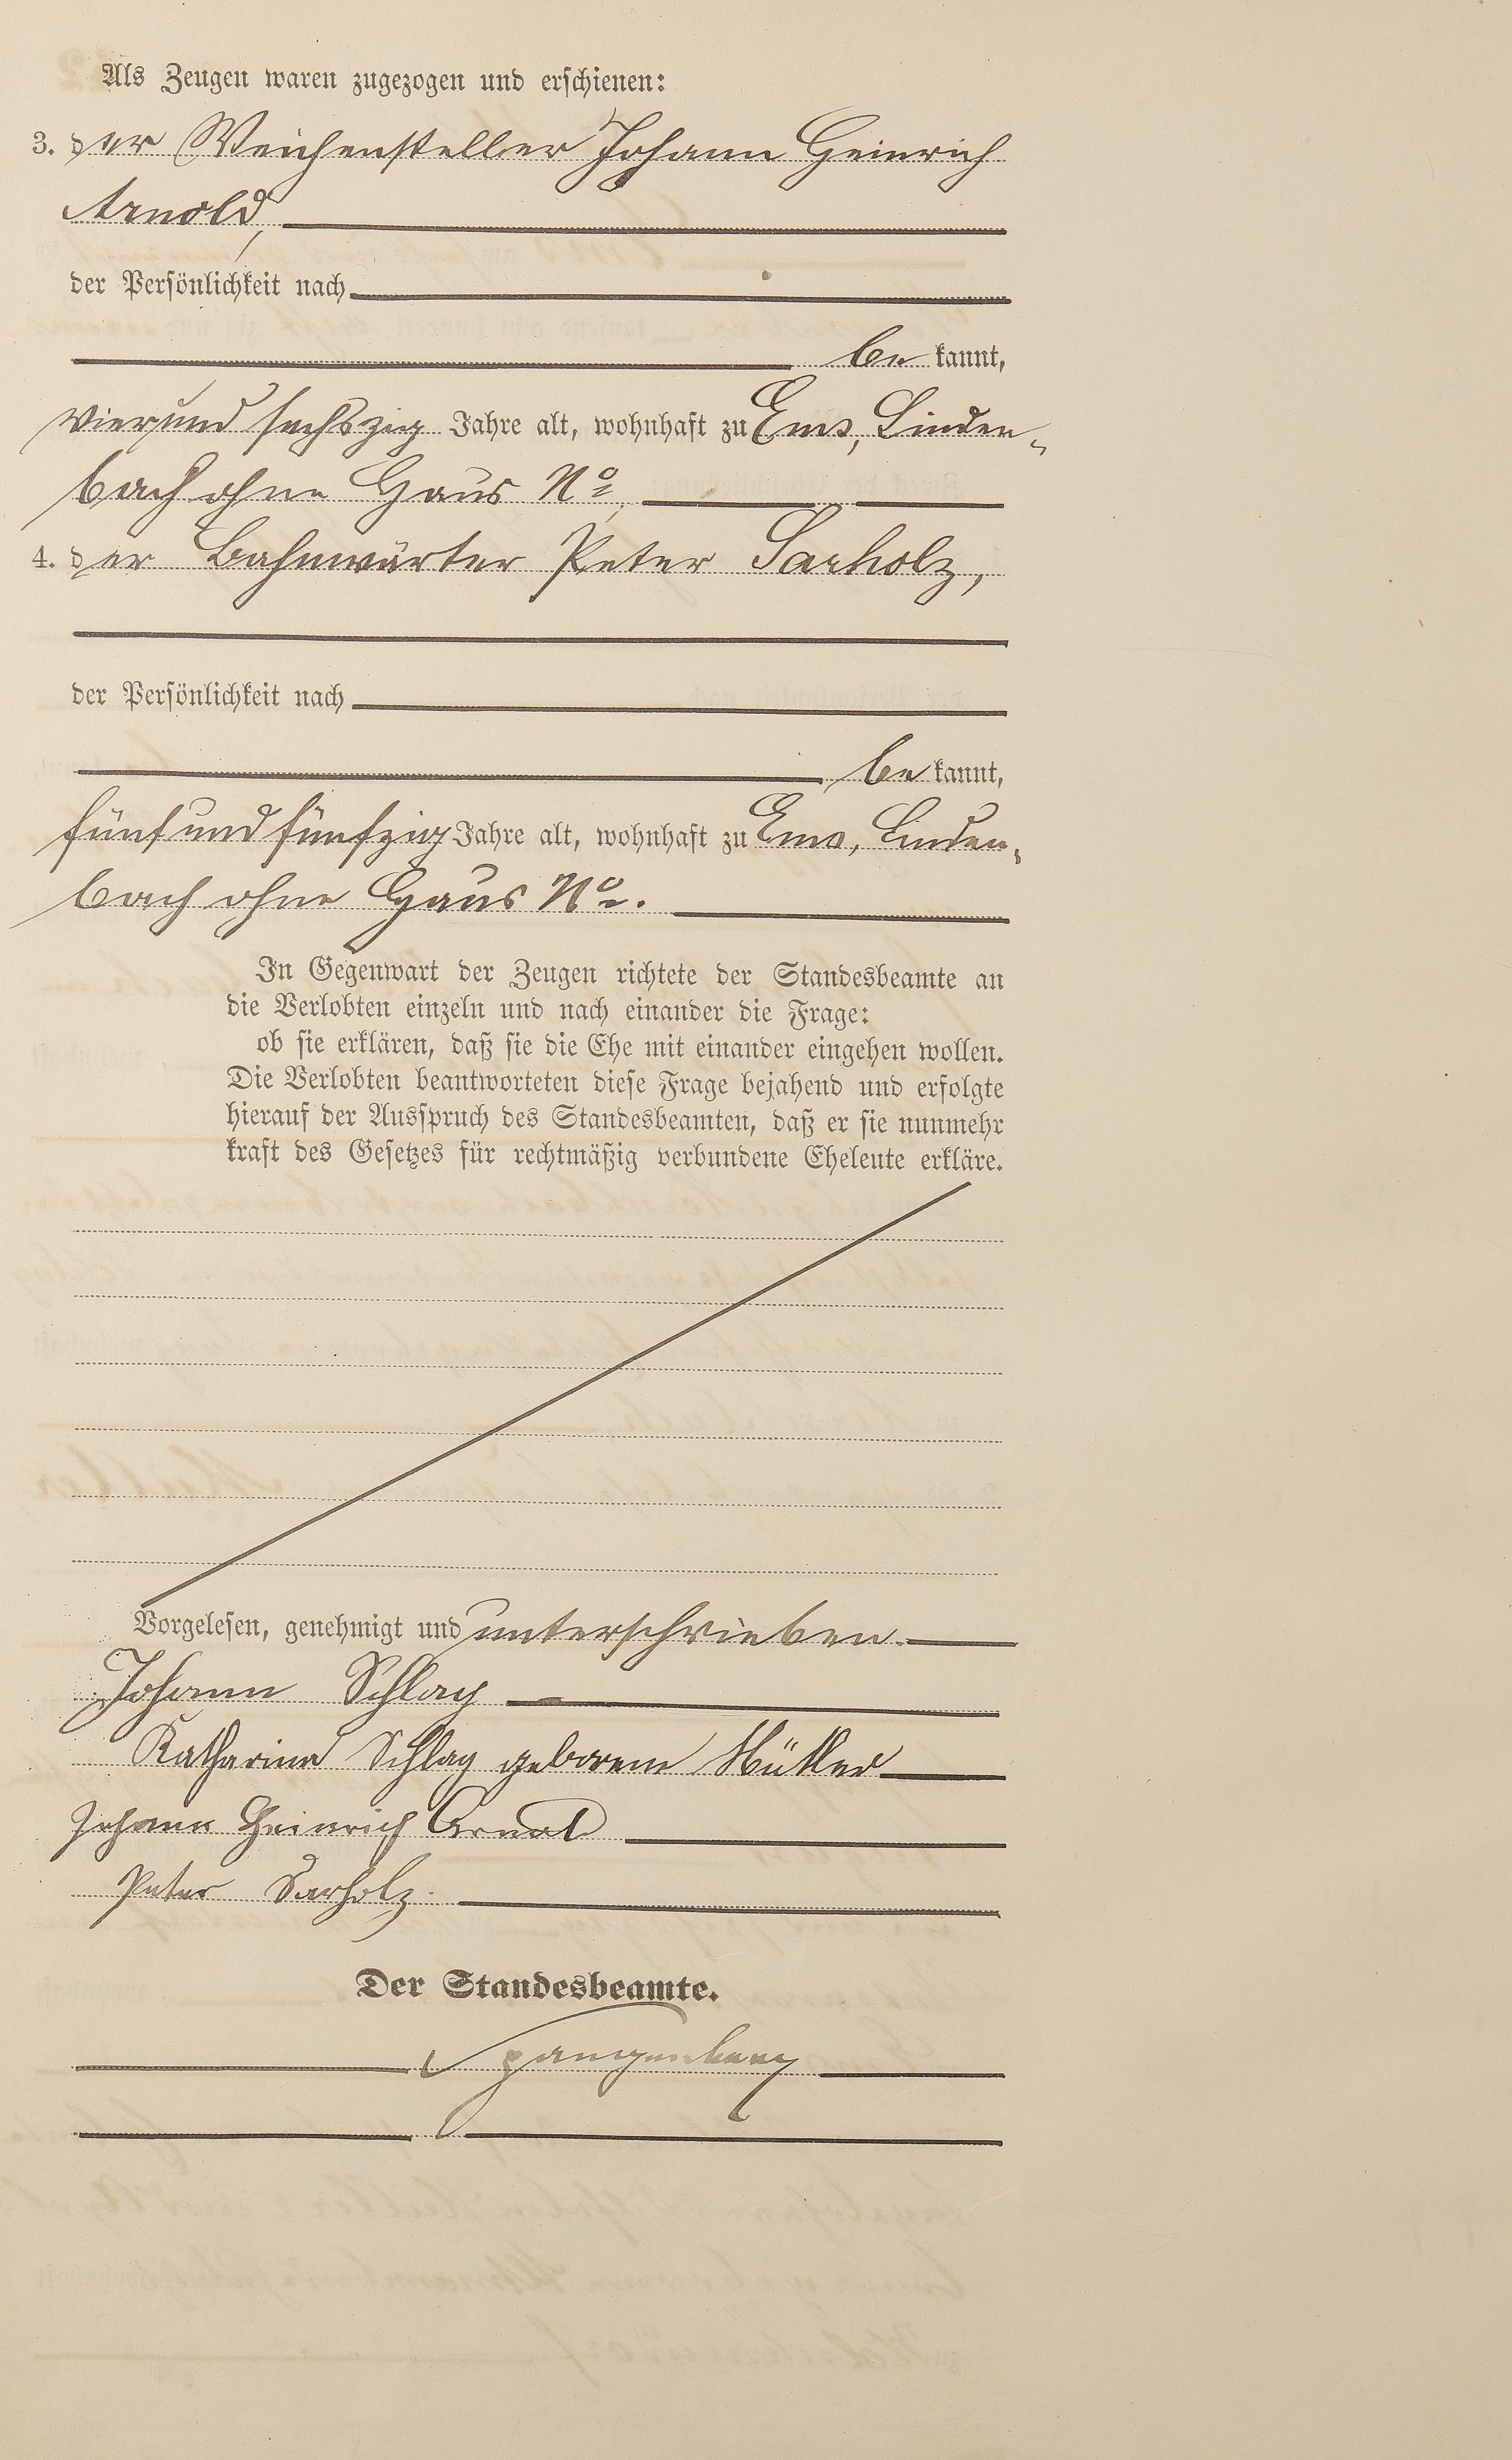 Als Zeugen waren zugezogen und erschienen:
3. der Weichensteller Johann Heinrich
Arnold,
der Persönlichkeit nach
be kannt,
vierundsechszig Jahre alt, wohnhaft zu Ems, Linden-
bach ohne Haus No,
4. der Bahnwärter Peter Sarholz,
der Persönlichkeit nach
be kannt,
fünfundfünfzig Jahre alt, wohnhaft zu Ems, Linden-
bach ohne Haus No.
In Gegenwart der Zeugen richtete der Standesbeamte an
die Verlobten einzeln und nach einander die Frage:
ob sie erklären, daß sie die Ehe mit einander eingehen wollen.
Die Verlobten beantworteten diese Frage bejahend und erfolgte
hierauf der Ausspruch des Standesbeamten, daß er sie nunmehr
kraft des Gesetzes für rechtmäßig verbundene Eheleute erkläre.
Vorgelesen, genehmigt und unterschrieben.
Johann Schlag
Katharina Schlag geborene Müller
Johann Heinrich Arnold
Peter Sarholz.
Der Standesbeamte.
Spangenberg